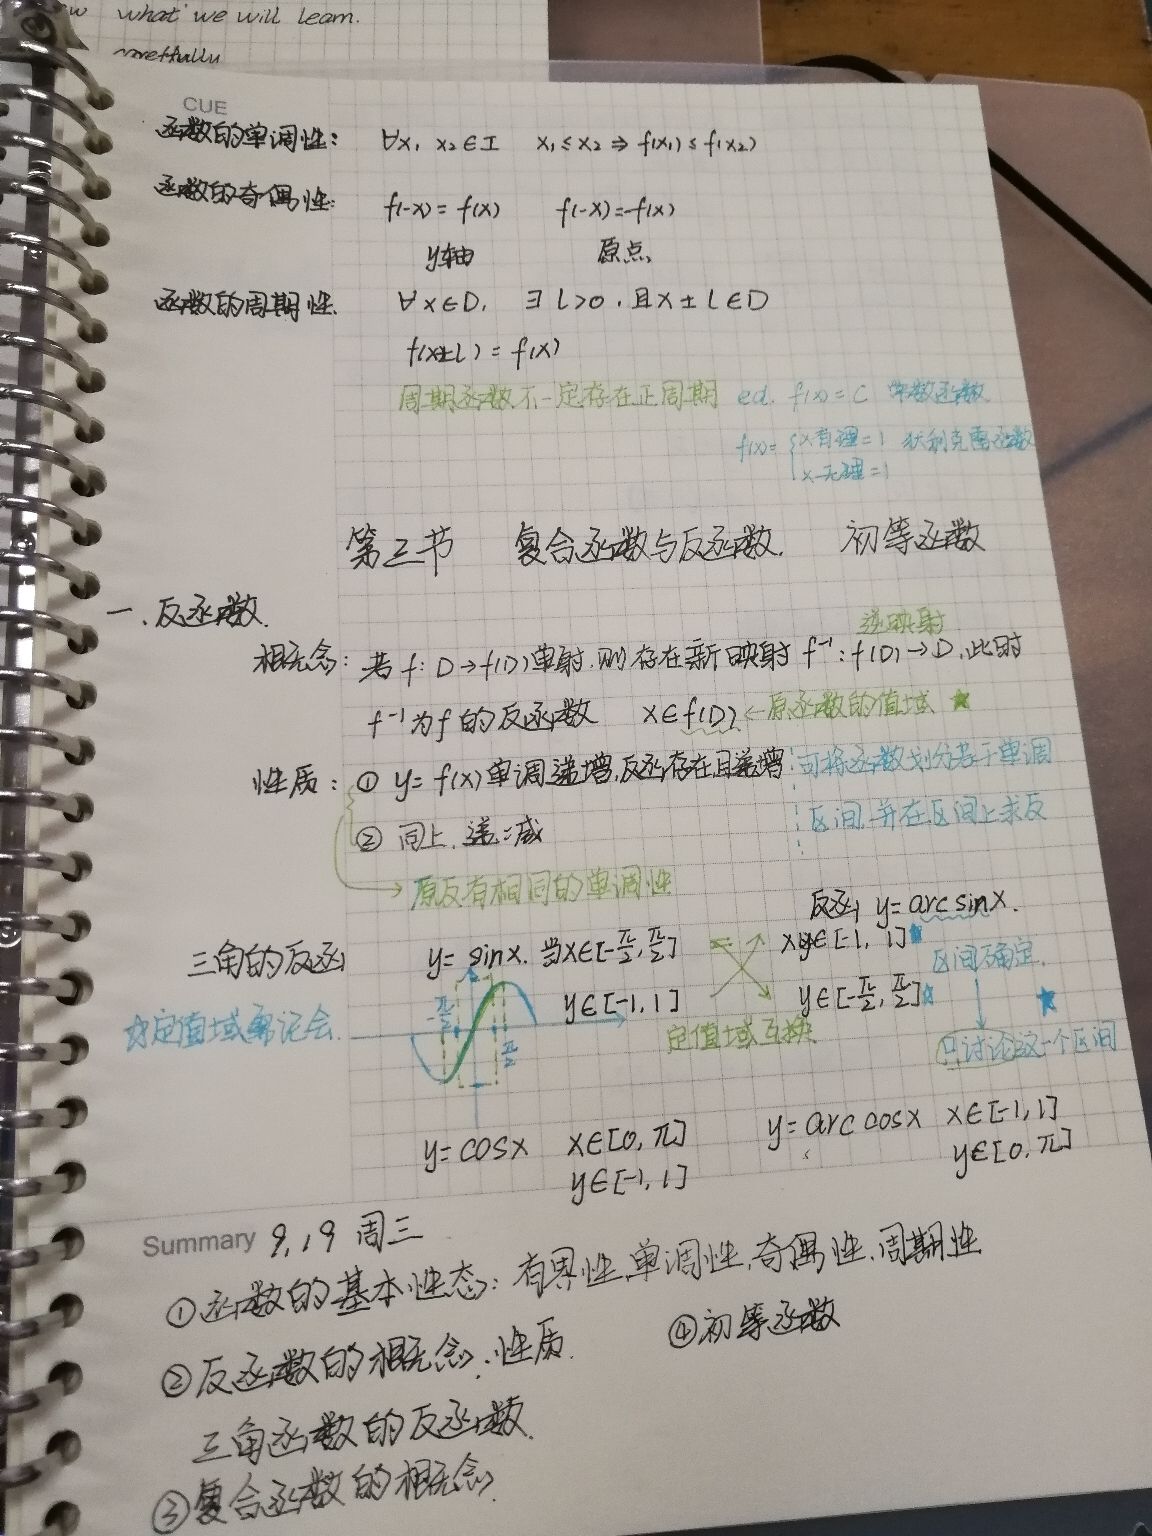 what we will learn.
CUE
函数的单调性: ∀x₁ x₂∈I x₁≤x₂ ⇒ f(x₁)≤f(x₂)
函数的奇偶性: f(-x)=f(x) f(-x)=-f(x)
y轴 原点
函数的周期性. ∀x∈D, ∃l>0, 且x±l∈D
f(x±l)=f(x)
周期函数不一定存在正周期 f(x)=C 常数函数
f(x)={x有理=1 狄利克雷函数
x无理=1
第三节 复合函数与反函数. 初等函数
一、反函数.
逆映射
概念: 若f:D→f(D)单射,则存在新映射f⁻¹:f(D)→D,此时
f⁻¹为f的反函数 x∈f(D) ←原函数的值域 ★
性质: ① y=f(x)单调递增,反函存在且递增 可将函数划分若干单调
② 同上,递减 区间,并在区间上求反
→原反有相同的单调性
反函 y=arcsinx.
三角的反函 y=sinx. 当x∈[-π/2,π/2] x∈[-1,1]★ 区间确定.
☆定值域需记会. -π/2 π/2 y∈[-1,1] y∈[-π/2,π/2]☆ ★
定值域互换 只讨论这一个区间
y=cosx x∈[0,π] y=arccosx x∈[-1,1]
y∈[-1,1] y∈[0,π]
Summary 9.19 周三
①函数的基本性态: 有界性,单调性,奇偶性,周期性
②反函数的概念、性质. ④初等函数
三角函数的反函数.
③复合函数的概念